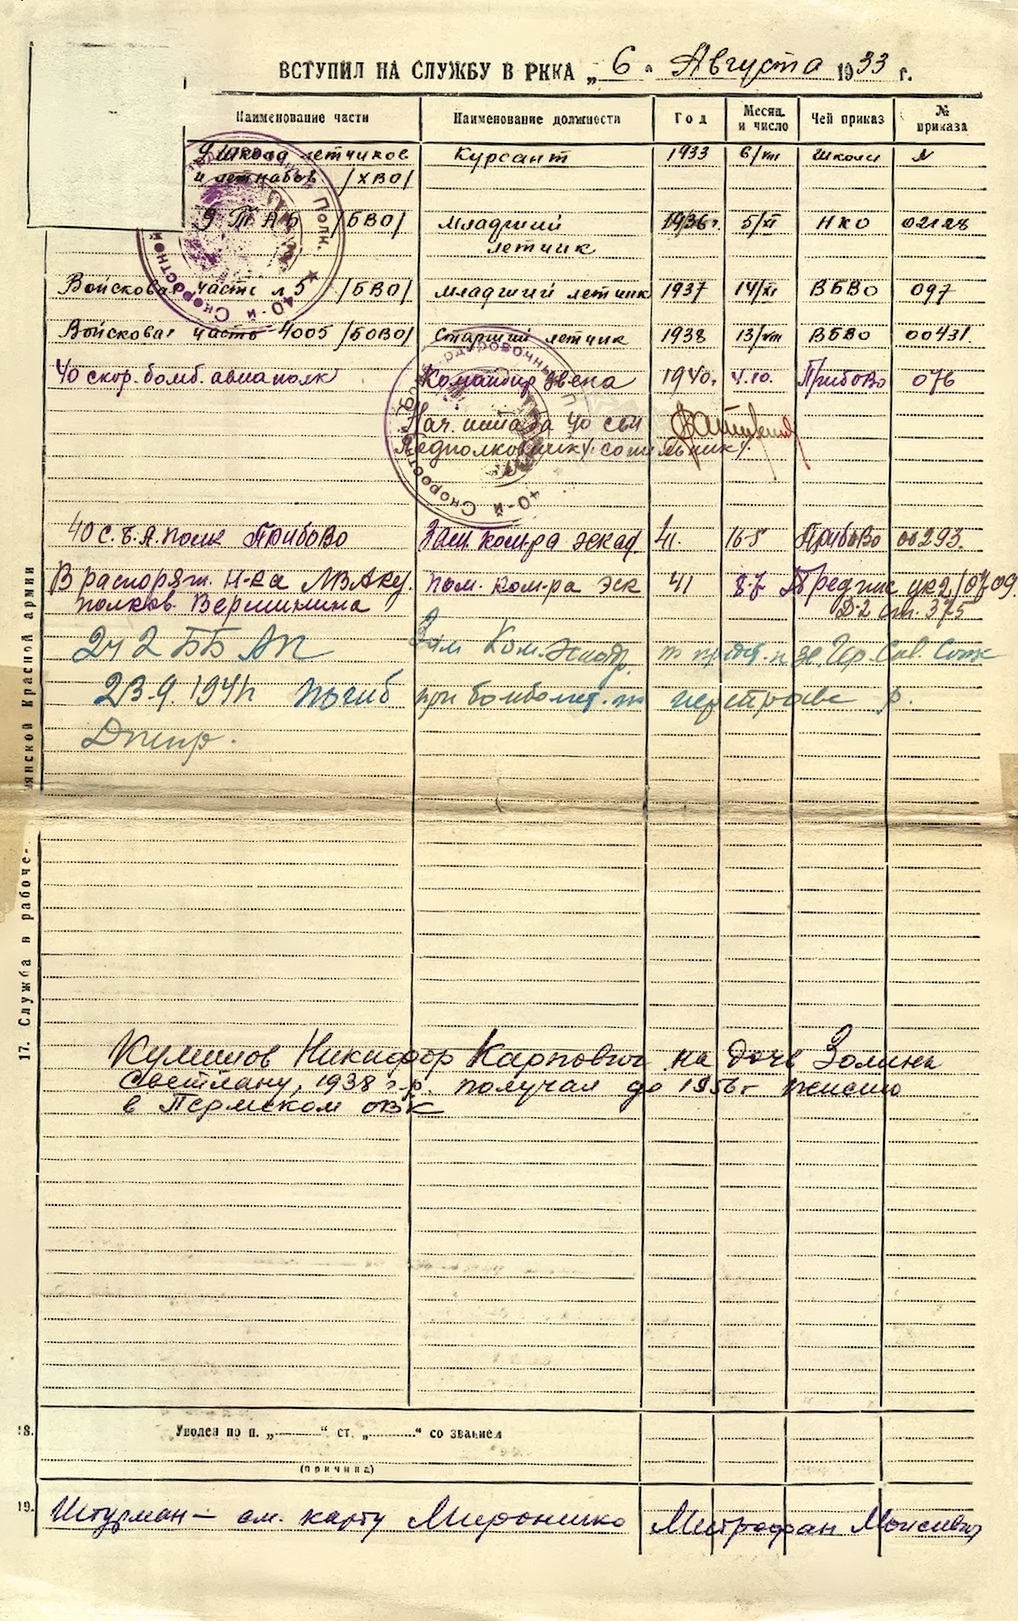 ВСТУПИЛ НА СЛУЖБУ В РККА „ 6 " Августа 1933 г.
Наименование части Наименование должности Год Месяц и число Чей приказ № приказа
9 школа летчиков Курсант 1933 6/VIII школы №
и летнабов /ХВО/
9 ТАБ /БВО/ Младший 1936г. 5/XI НКО 02128
летчик
Войсковая часть №5 /БВО/ младший летчик 1937 14/XI ВБВО 097
Войсковая часть 4005 /БОВО/ Старший летчик 1938 13/VIII ВБВО 00431.
40 скор. бомб. авиаполк Командир звена 1940г. 4.10. ПрибОВО 076
Нач. штаба 40 сбп
Подполковник
40-й Скоростной Полк
40-й Скоростной
40 С.Б.А. полк ПрибОВО Зам. ком-ра эскад 41. 16-5 ПрибОВО 00293.
В распоряж. Н-ка полков. Вершинина пом. ком-ра эск 41 8-7 Предпис ук2/0709
Д-2 ст. 375
242 ББАП Зам Ком. Эскадр. Гер. Сов. Союз
23.9.1941г погиб при бомбомет. переправе р.
Днепр.
17. Служба в рабоче- янской Красной армии
Никифор Карпович на дочь Золина
Светлану, 1938 г.р. получал до 1956г пенсию
в Пермском ОВК
18. Уволен по п. „ " ст. „ " со званием
(причина)
19. Штурман — см. карту Мироненко Митрофан Моисеевич